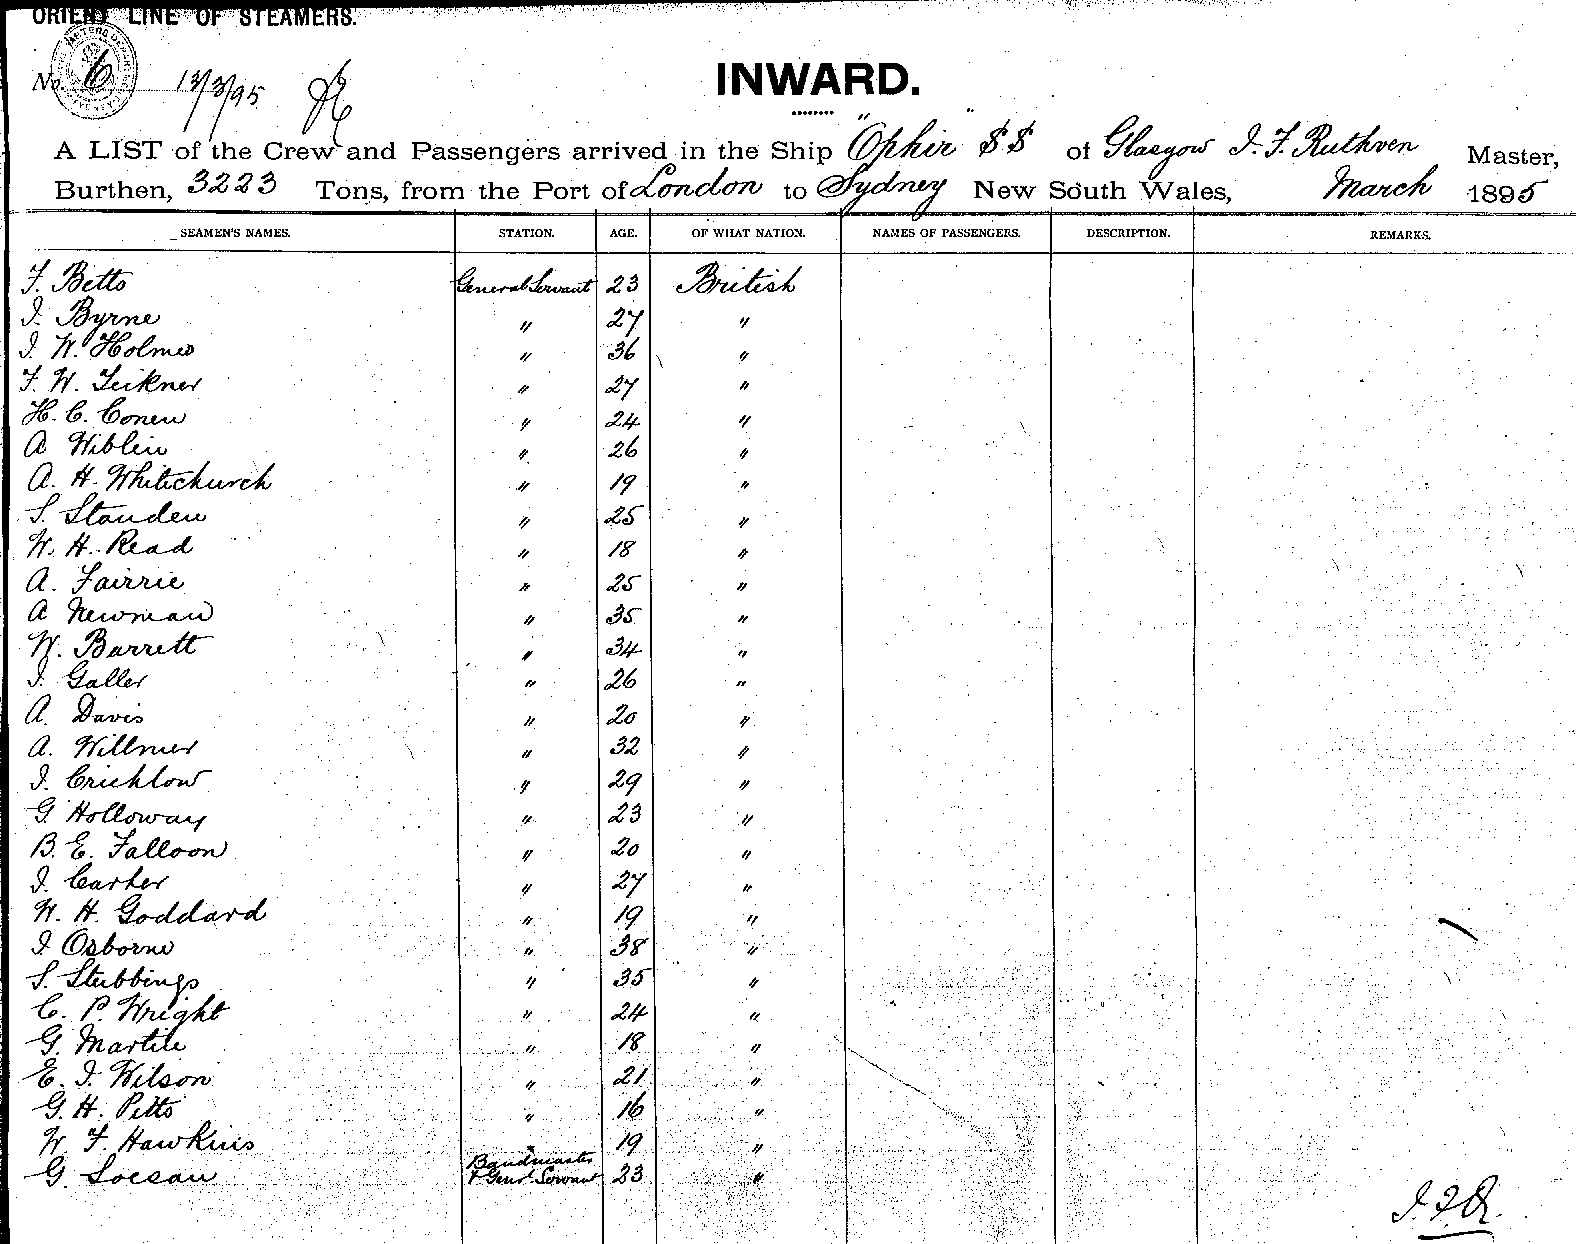 ORIENT LINE OF STEAMERS.
No. 6 13/3/95
INWARD.
A LIST of the Crew and Passengers arrived in the Ship "Ophir" SS of Glasgow J. F. Ruthven Master,
Burthen, 3223 Tons, from the Port of London to Sydney New South Wales, March 1895
SEAMEN'S NAMES. STATION. AGE. OF WHAT NATION. NAMES OF PASSENGERS. DESCRIPTION. REMARKS.
F. Betts General Servant 23 British
J. Byrne " 27 "
J. W. Holmes " 36 "
F. W. Tickner " 27 "
H. C. Coneu " 24 "
A Wiblin " 26 "
A. H. Whitechurch " 19 "
S. Standen " 25 "
W. H. Read " 18 "
A. Fairrie " 25 "
A Newman " 35 "
W. Barrett " 34 "
J. Galler " 26 "
A. Davis " 20 "
A. Willmer " 32 "
J. Cricklow " 29 "
G Holloway " 23 "
B. E. Falloon " 20 "
J. Carter " 27 "
W. H. Goddard " 19 "
J Osborne " 38 "
S. Stubbings " 35 "
C. P. Wright " 24 "
G. Martin " 18 "
E. J. Wilson " 21 "
G. H. Pitts " 16 "
W. F. Hawkins " 19 "
G. Locsau Bandmaster & Genl Servant 23 "
J. F. R.